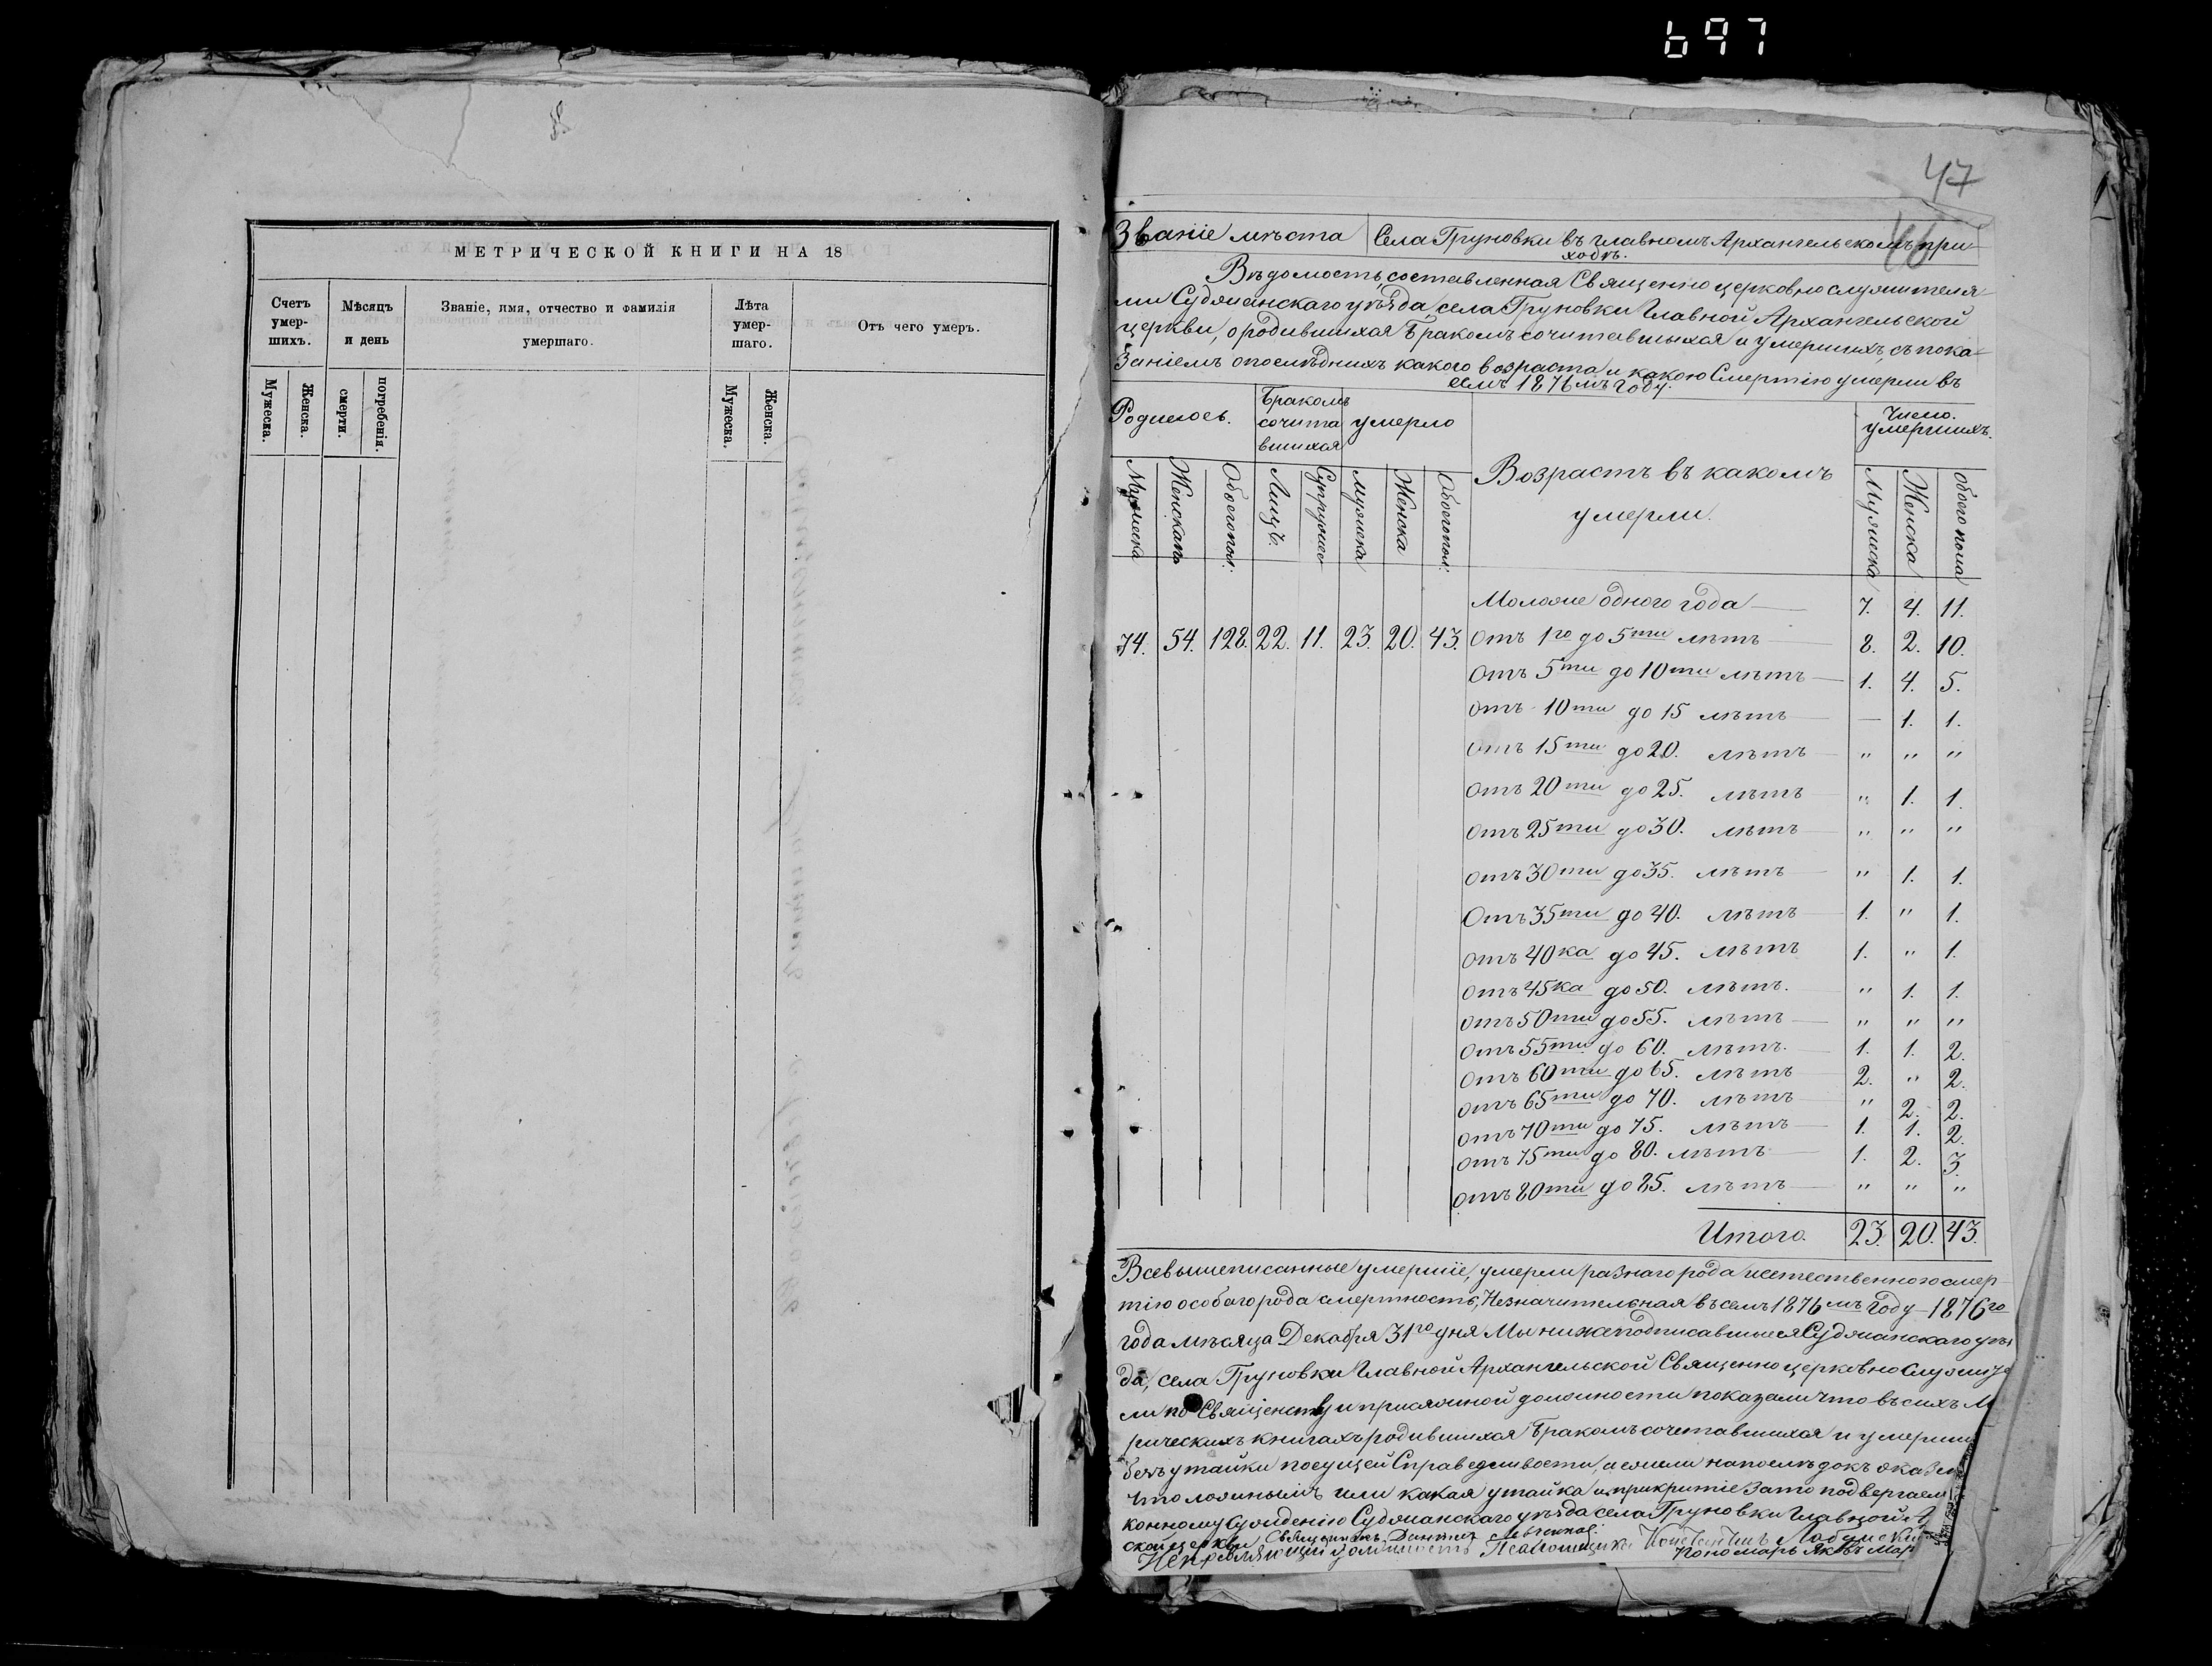 697
МЕТРИЧЕСКОЙ КНИГИ НА 18
Счетъ умер- шихъ.
Мѣсяцъ и день
Званіе, имя, отчество и фамилія умершаго.
Лѣта умер- шаго.
Отъ чего умеръ.
Мужеска.
Женска.
смерти.
погребенія.
Мужеска.
Женска.
47
46
Званіе мѣста Села Груновки въ главномъ Архангельскомъ при-
ходѣ.
Вѣдомость, составленная Священно церковно служителя-
ми Суджанскаго уѣзда села Груновки Главной Архангельской
церкви, о родившихся Бракомъ сочитавшихся и умершихъ, съ пока-
заніемъ о послѣднихъ какого возраста и какою Смертію умерли въ
семъ 1876мъ году.
Родилось.
Бракомъ
сочита
вшихся
умерло
Возрастъ въ какомъ
умерли.
Число.
умершихъ.
Мужеска
Женска
Обоего пол:
Лицъ.
Супружес
Мужеска
Женска
Обоего пол:
Мужеска
Женска
Обоего пола
Моложе одного года 7. 4. 11.
74. 54. 128. 22. 11. 23. 20. 43. Отъ 1го до 5ти лѣтъ 8. 2. 10.
Отъ 5ти до 10ти лѣтъ 1. 4. 5.
Отъ 10ти до 15 лѣтъ — 1. 1.
Отъ 15ти до 20. лѣтъ " " "
Отъ 20ти до 25. лѣтъ " 1. 1.
Отъ 25ти до 30. лѣтъ " " "
Отъ 30ти до 35. лѣтъ " 1. 1.
Отъ 35ти до 40. лѣтъ 1. " 1.
Отъ 40ка до 45. лѣтъ 1. " 1.
Отъ 45ка до 50. лѣтъ. " 1. 1.
Отъ 50ти до 55. лѣтъ " " "
Отъ 55ти до 60. лѣтъ. 1. 1. 2.
Отъ 60ти до 65. лѣтъ 2. " 2.
Отъ 65ти до 70. лѣтъ " 2. 2.
Отъ 70ти до 75. лѣтъ 1. 1. 2.
Отъ 75ти до 80. лѣтъ 1. 2. 3.
Отъ 80ти до 85. лѣтъ " " "
Итого. 23. 20. 43.
Все вышеписанные умершіе, умерли разнаго рода и естественною смер-
тію особаго рода смертность, Незначительная въ семъ 1876мъ году 1876го
года мѣсяца Декабря 31го дня Мы нижеподписавшыеся Суджанскаго уѣз
да, села Груновки Главной Архангельской Священно церковно Служите
ли по Священству и присяжной должности показали что въ сихъ М
рическихъ книгахъ родившихся Бракомъ сочетавшихся и умерши
безъ утайки по сущей Справедливости, а ежели на послѣдокъ окаже
что ложнымъ или какая утайка и прикрытіе за то подвергаем
конному Сужденію Суджанскаго уѣзда села Груновки Главной А
ской церкви Священникъ
должность Псаломщика Лобунский
Пономарь Яковъ Мар